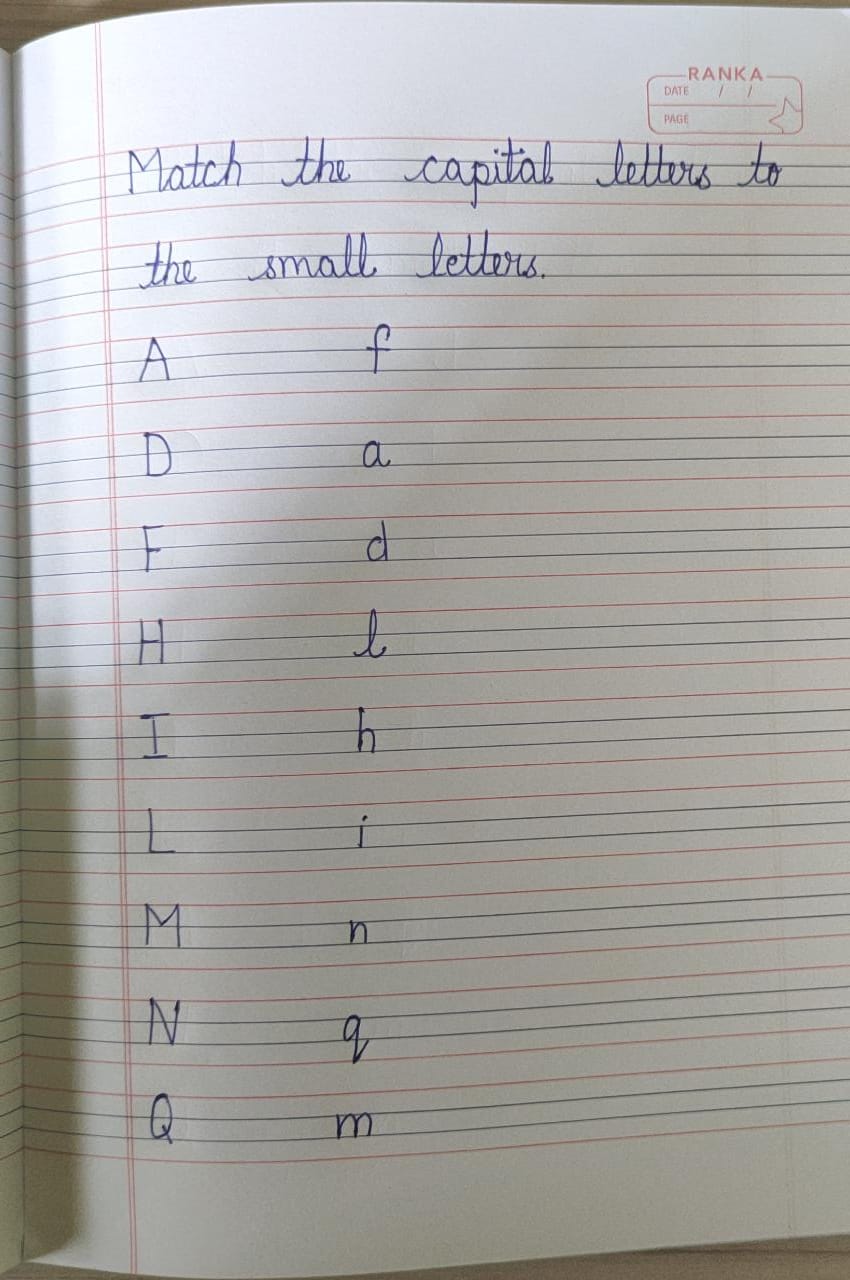 RANKA
DATE / /
PAGE
Match the capital letters to
the small letters.
A f
D a
F d
H l
I h
L i
M n
N q
Q m